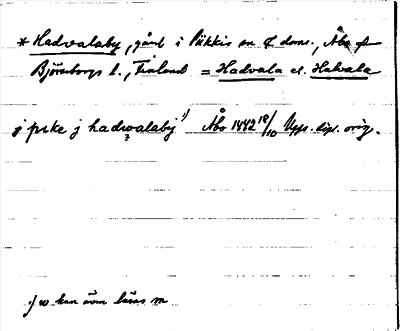 * Hadvalaby, gård i Pikkis sn o doms., Åbo o
Björneborgs l., Finland = Hadvala el. Hakvala
j pike j hadwalaby 1) Åbo 1442 18/10 Upps. dipl. orig.
1) w kan även läsas m